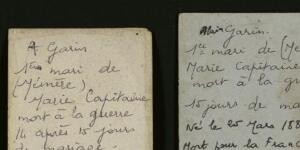 A Garin
1er mari de
(Mémère)
Marie Capitaine
mort à la guerre
14 après 15 jours
de mariage
Alain Garin.
1er mari de (Mé
Marie Capitaine
mort à la gue
15 jours de ma
Né le 25 Mars 188
Mort pour la Franc